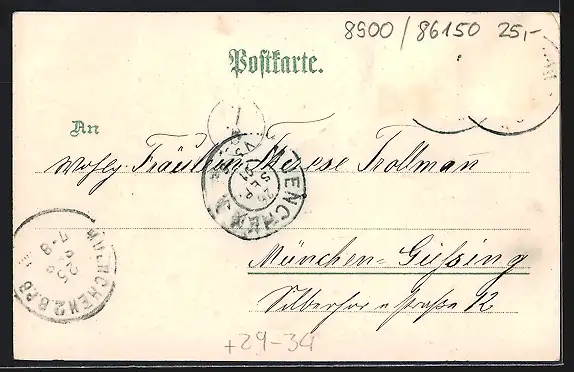 8900/86150 25,-
Postkarte.
An
Wohlg. Fräulein Therese Trollman
MUENCHEN
München-Giesing
Silberhornstraße 12
MUENCHEN 2 B.P.B
7-8
+29-34